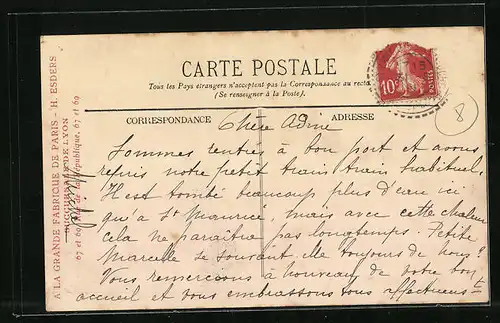 A LA GRANDE FABRIQUE DE PARIS - H. ESDERS
SUCCURSALE DE LYON
67 et 69 Rue de la République, 67 et 69
CARTE POSTALE
Tous les Pays étrangers n'acceptent pas la Correspondance au recto
(Se renseigner à la Poste).
10c
POSTES
8
CORRESPONDANCE
ADRESSE
Chère Adine
Sommes rentrés à bon port et avons
repris notre petit train train habituel.
Il est tombé beaucoup plus d'eau ici
qu'a St Maurice, mais avec cette chaleur
cela ne paraîtra pas longtemps. Petite
Marcelle se souvient elle toujours de nous?
Vous remercions à nouveau de votre bon
accueil et vous embrassons tous affectueuse t